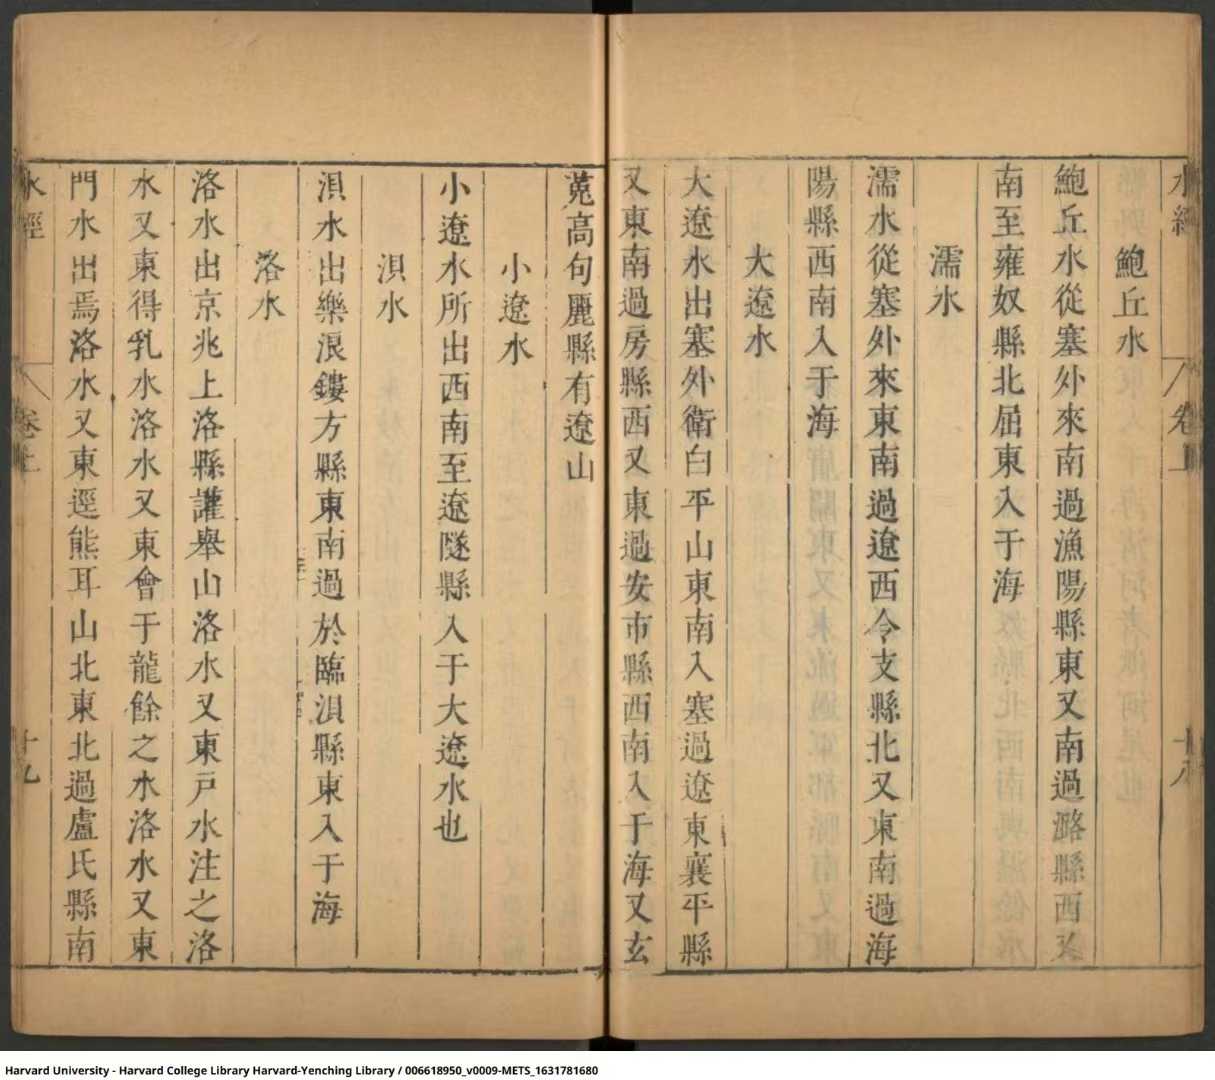 水經 卷上 十八
鮑丘水
鮑丘水從塞外來南過漁陽縣東又南過潞縣西又
南至雍奴縣北屈東入于海
濡水
濡水從塞外來東南過遼西令支縣北又東南過海
陽縣西南入于海
大遼水
大遼水出塞外衛白平山東南入塞過遼東襄平縣
又東南過房縣西又東過安市縣西南入于海又玄
菟高句麗縣有遼山
小遼水
小遼水所出西南至遼隧縣入于大遼水也
浿水
浿水出樂浪鏤方縣東南過於臨浿縣東入于海
洛水
洛水出京兆上洛縣讙舉山洛水又東戶水注之洛
水又東得乳水洛水又東會于龍餘之水洛水又東
門水出焉洛水又東逕熊耳山北東北過盧氏縣南
水經 卷上 十九
Harvard University - Harvard College Library Harvard-Yenching Library / 006618950_v0009-METS_1631781680